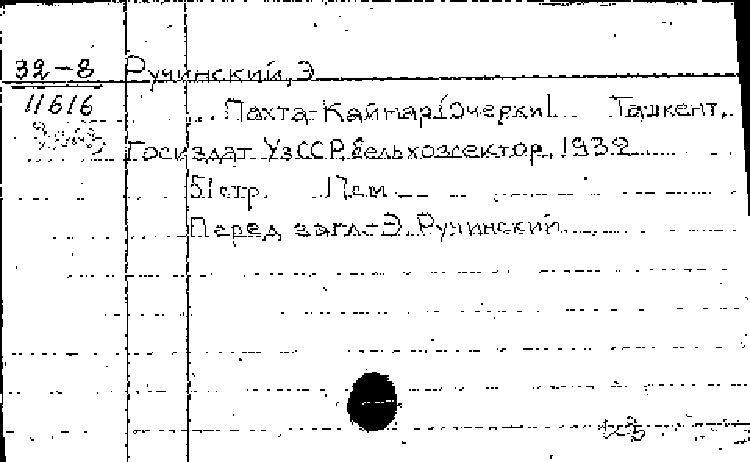 32-8 Ручинский, Э
11616 ... Пахта-Кайнар [Очерки] Ташкент,
Госиздат УзССР, Сельхозсектор, 1932
51 стр. 17см
Перед загл.-Э. Ручинский